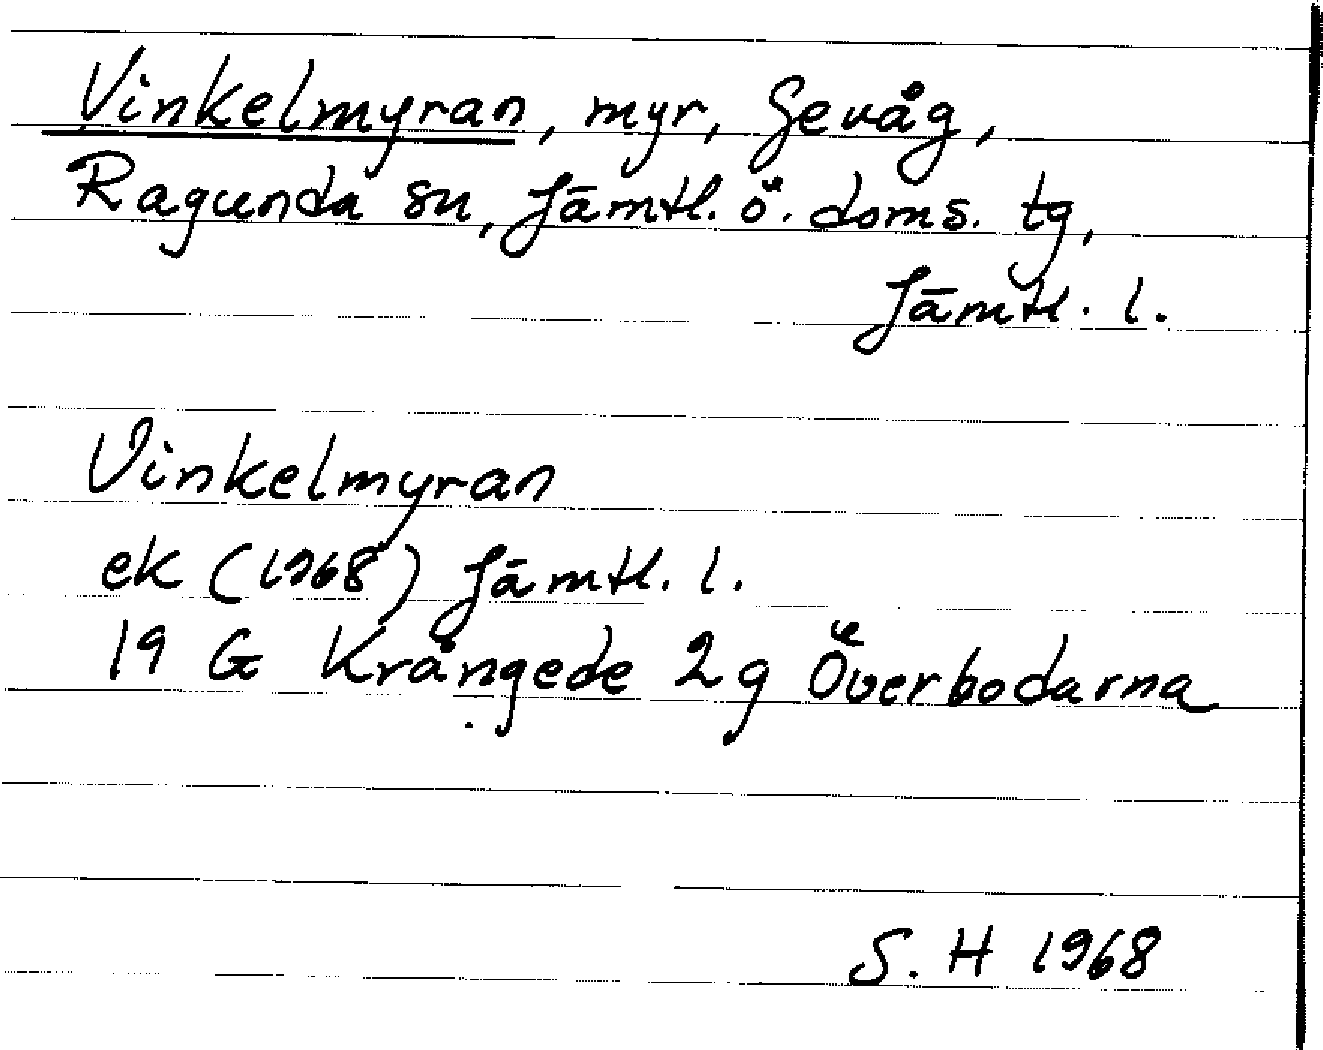 Vinkelmyran, myr, Gevåg,
Ragunda sn, Jämtl. ö. doms. tg,
Jämtl. l.
Vinkelmyran
ek (1968) Jämtl. l.
19 G Krångede 2g Överbodarna
S. H 1968